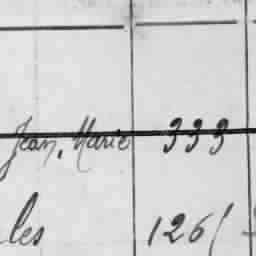 Jean, Marie 333
les 126